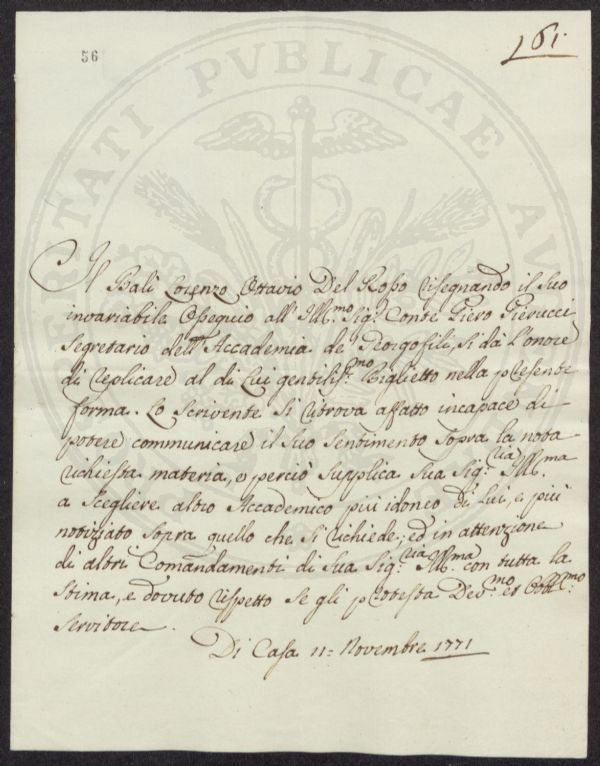 56
161.
Il Balì Lorenzo Ottavio Del Rosso risegnando il suo
invariabile ossequio all' Ill.mo Sig. Conte Piero Pierucci
Segretario dell' Accademia de Georgofili, si dà l'onore
di replicare al di lui gentiliss.mo Biglietto nella presente
forma. Lo scrivente si ritrova affatto incapace di
potere communicare il suo sentimento sopra la nota
richiesta materia, e perciò supplica Sua Sig.ria Ill.ma
a scegliere altro Accademico più idoneo di lui, e più
notiziato sopra quello che si richiede; ed in attenzione
di altri Comandamenti di Sua Sig.ria Ill.ma con tutta la
stima, e dovuto rispetto se gli protesta Dev.mo et Obbl.mo
Servitore
Di Casa 11= Novembre 1771
PROSPERITATI PVBLICAE AVGENDAE